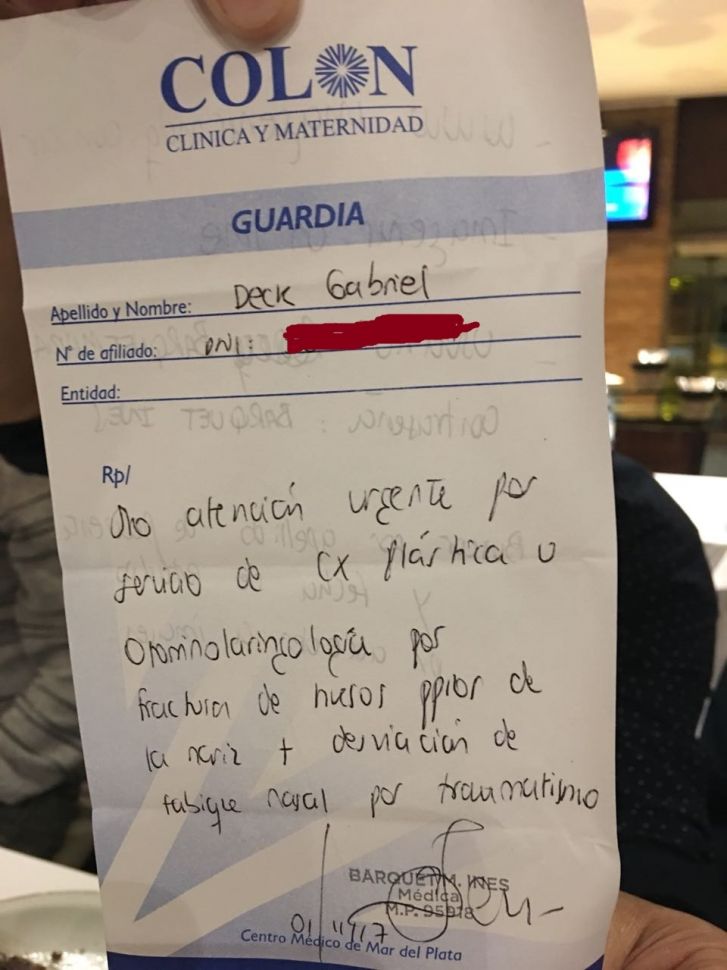 COLON
CLINICA Y MATERNIDAD
GUARDIA
Apellido y Nombre: Deck Gabriel
N° de afiliado: DNI:
Entidad:
Rp/
S/to atención urgente por
servicio de CX plástica u
Otorrinolaringología por
fractura de huesos ppios de
la nariz + desviación de
tabique nasal por traumatismo
BARQUET M. INES
Médica
M.P. 95978
01/11/17
Centro Médico de Mar del Plata